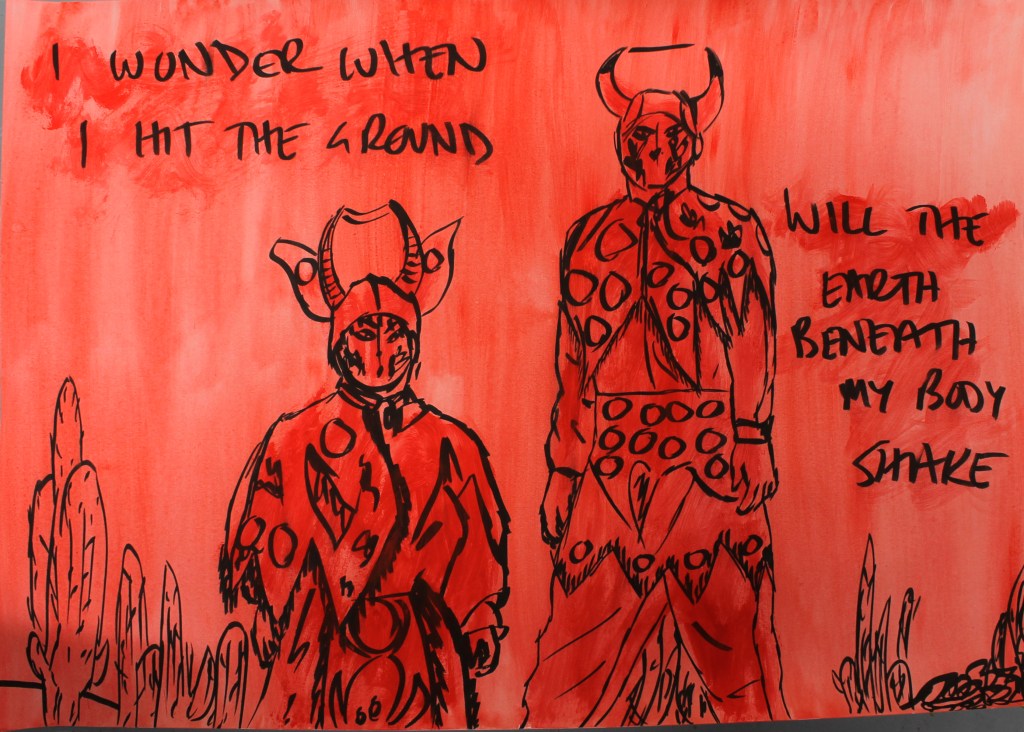 I WONDER WHEN
I HIT THE GROUND
WILL THE
EARTH
BENEATH
MY BODY
SHAKE